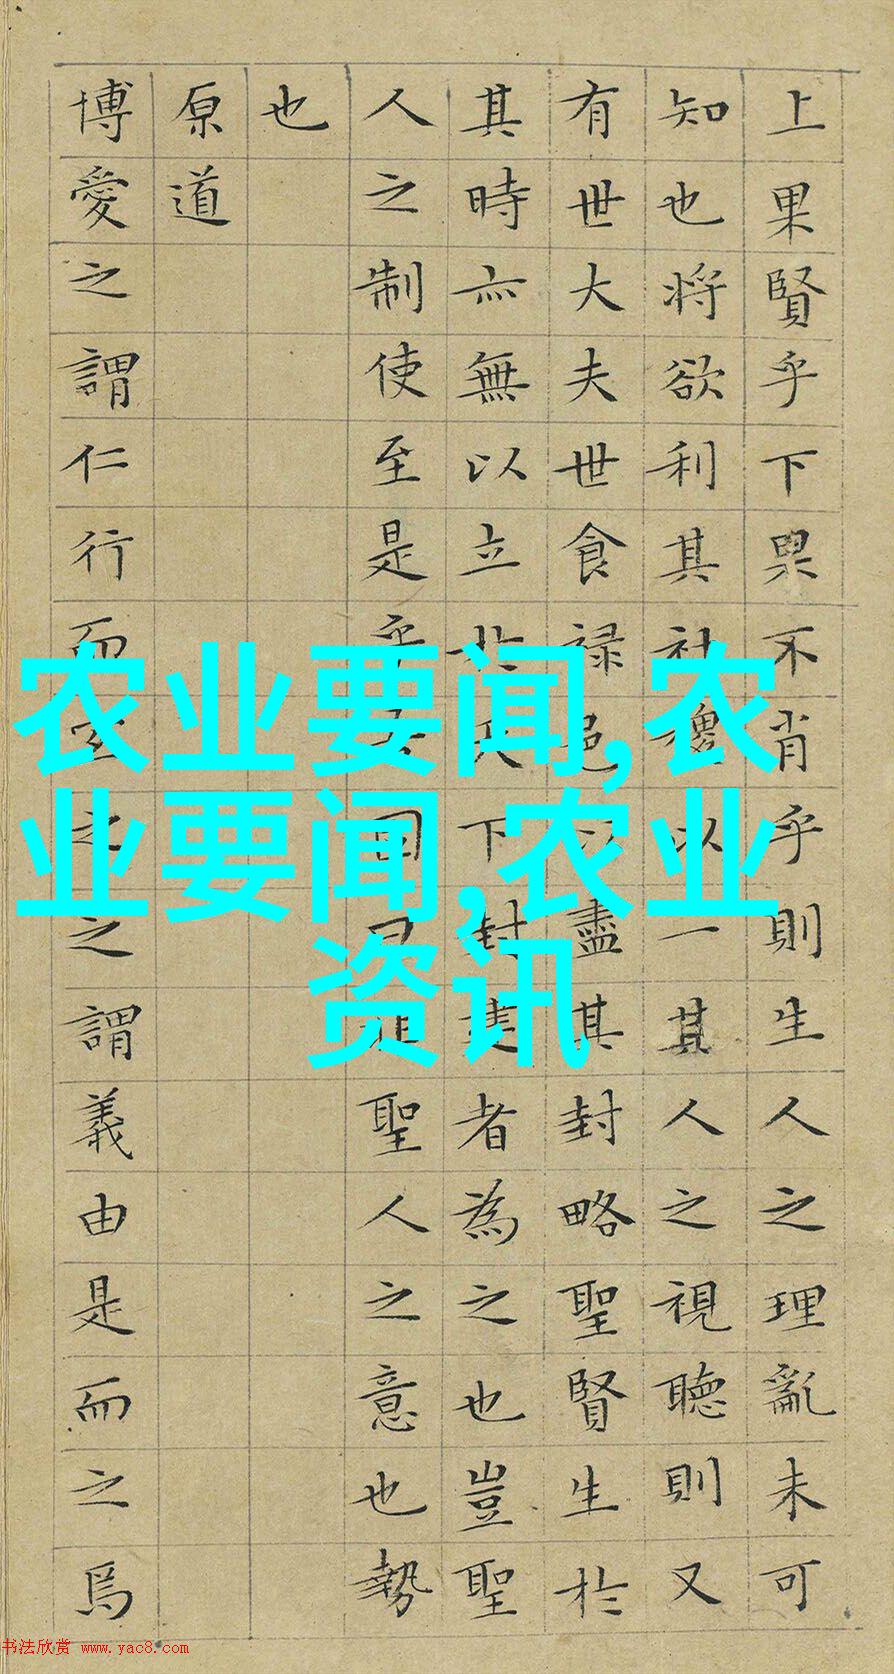 上果賢乎下果不肖乎則生人之理亂未可
知也將欲利其社稷以一其人之視聽則又
有世大夫世食祿邑以盡其封略聖賢生於
其時亦無以立於天下封建者為之也豈聖
人之制使至是乎吾固曰非聖人之意也勢
也
原道
博愛之謂仁行而宜之之謂義由是而之焉
农业要闻,农
业要闻,农业
资讯
书法欣赏 www.yac8.com